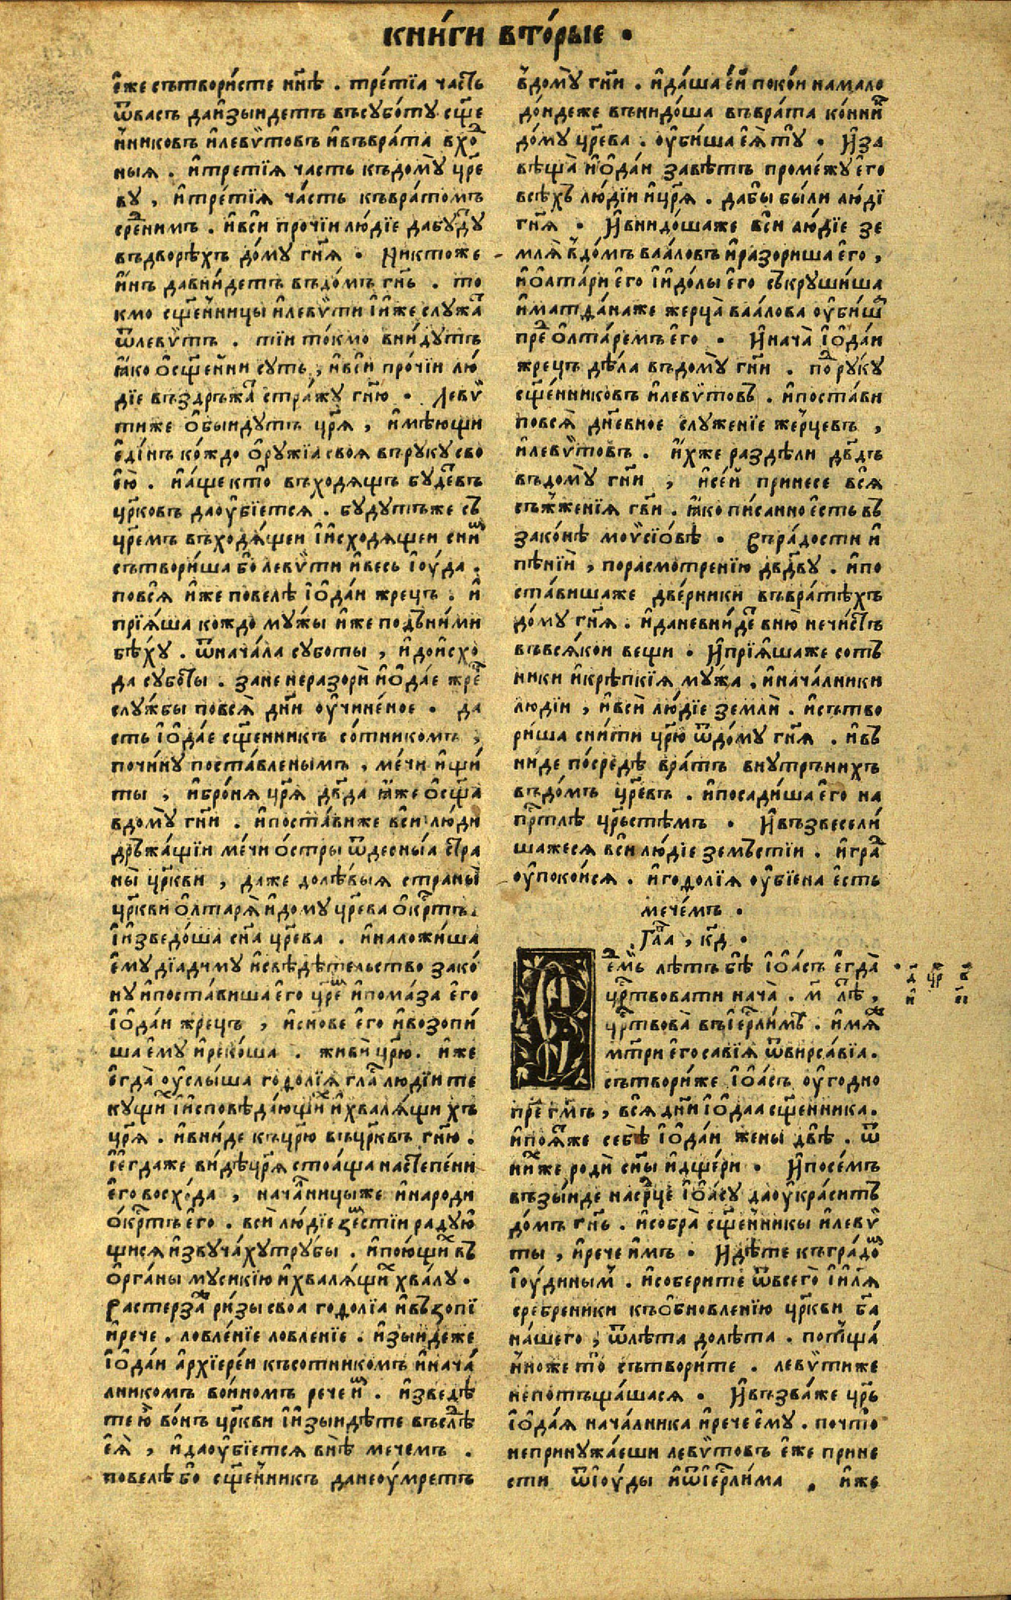 кни́ги вто́рые •
е҆́же сътвори́сте нн҃ѣ . тре́тїа ча́сть
ѿва́съ даи҆зы́идетъ въсубо́ту сщ҃е
н҆никовъ и҆леви́товъ и҆въвра́та вхо́
ныѧ . и҆тре́тїѧ часть къдо́му цр҃е
ву , и҆тре́тїѧ ча́сть къвратомъ
сре́днимъ . и҆вси прочїи лю́дїе дабу́ду
въдворѣ́хъ до́му гн҃ѧ • Никтоже
и҆́нъ давни́детъ въдо́мъ гн҃ь . то
кмо сщ҃е́нницы и҆леви́ти і҆и҆́же слу́жа
ѿлеви́тъ . ті́и то́кмо вни́дутъ
ꙗ҆́ко ѻ҆сщ҃е́нни суть , и҆вси прочїи лю́
дїе въздръжа́ стра́жу гн҃ю • Леви́
тиже ѻ҆бы́идутъ цр҃ѧ , и҆мѣ́ющи
е҆ди́нъ ко́ждо ѻ҆ру́жїа своѧ въруку сво
е҆ю . и҆а҆́ще кто̀ въходѧщъ бу́девъ
цр҃ковъ даоу҆бїе́тсѧ . бу́дутъже съ
цр҃емъ въходѧ́щеи і҆исходѧщеи сни́
сътвори́ша бо леви́ти и҆весь і҆ю́да .
повсѧ̀ и҆́же повелѣ̀ і҆ѻда́и жрецъ . и҆
прїѧ́ша кождо му́жы и҆́же подъни́ми
бѣ́ху . ѿнача́ла субо́ты , и҆дои҆схо́
да субо́ты . зане неразорѝ и҆ѻда́е жре
слу́жбы повсѧ̀ дн҃и оу҆чине́ное . да
сть і҆ѻда́е сщ҃е́нникъ со́тникомъ ,
почи́ну поста́вленымъ , ме́чи и҆щи
ты , и҆бронѧ цр҃ѧ дв҃да ꙗ҆́же ѻ҆сщ҃а̀
вдому̀ гн҃и . и҆поста́виже вси лю́ди
дръжа́щїи ме́чи ѻ҆́стры ѿдесны́а стра
ны̀ цр҃кви , да́же долѣ́выѧ страны̀
цр҃кви ѻ҆лтарѧ̀ и҆до́му цр҃ева ѻ҆́крт̑ъ .
і҆и҆зведо́ша сн҃а цр҃ева . и҆наложи́ша
е҆му̀ дїади́му и҆свѣдѣ́тельство зако́
ну и҆поста́виша е҆го̀ цр҃е и҆пома́за е҆го̀
і҆ѻда́и жрецъ , и҆сно́ве е҆го̀ и҆возопи́
ша е҆му̀ и҆реко́ша . живѝ цр҃ю . и҆́же
е҆гда̀ оу҆слы́ша годолі́ѧ гла лю́дїи те
ку́щи і҆и҆сповѣда́ющи и҆хвалѧ́щи хъ
цр҃ѧ . и҆вни́де къцр҃ю въцр҃квъ гн҃ю .
і҆е҆гда́же ви́дѣ цр҃ѧ стоѧ́ща настепе́ни
е҆го̀ восхо́да , нача́лницыже и҆наро́ди
ѻ҆́крт̑ъ е҆го̀ . всѝ лю́дїе зе́мстїи ра́дую
щисѧ и҆звуча́ху трубы . и҆пою́щи въ
ѻ҆рга́ны мусикі́ю и҆хвалѧ́щи хва́лу .
Растерза̀ ри́зы своа годолі́а и҆възопѝ
и҆рече . ловле́нїе ловле́нїе . и҆зы́идеже
і҆ѻда́и а҆рхїере́и късо́тникомъ и҆нача́
лникомъ во́иномъ рече и҆́ . и҆зведѣ́
те ю҆̀ во́нъ цр҃кви і҆и҆зы́идѣте въслѣ́
е҆ѧ̀ , и҆даоу҆бїе́тсѧ внѣ̀ мечемъ .
повелѣ́ бо сщ҃е́нникъ данеоу́мретъ
вдому̀ гн҃и . и҆да́ша е҆́и поко́и намало
до́ндеже вънидо́ша въвра́та ко́нни
до́му цр҃ева . оу҆би́ша ю҆̀ ту̀ • И҆за
вѣща̀ и҆ѻда́и завѣ́тъ проме́жу е҆го̀
всѣ́хъ лю́дїи и҆цр҃ѧ . дабы̀ бы́ли лю́дї
гн҃ѧ • И҆внидо́шаже вси лю́дїе зе
млѧ̀ вдо́мъ ваа́ловъ и҆разори́ша е҆го̀ ,
и҆ѻ҆лтари е҆го̀ і҆и҆́долы е҆го̀ съкруши́ша
и҆матда́наже жерца̀ ваа́лова оу҆би́ш
пре ѻ҆лтаре́мъ е҆го̀ • И҆нача̀ і҆ѻда́и
жрецъ дѣ́ла въдому̀ гн҃и . по ру́ку
сщ҃е́нниковъ и҆леви́товъ . и҆поста́ви
повсѧ̀ дн҃евное служе́нїе же́рцевъ ,
и҆леви́товъ . и҆́хже раздѣли дв҃дъ
въдому̀ гн҃и , и҆се́и принесе всѧ
съжже́нїѧ гв҃и . ꙗ҆́ко пи́санно е҆сть въ
зако́нѣ моѵсїо́вѣ • Съра́дости и҆
пѣ́нїи , порасмотре́нїю дв҃дву . и҆по
ста́вишаже две́рники въврате́хъ
до́му гн҃ѧ . и҆даневни́де вню нечи́стъ
въвсѧ́кои вещи • И҆прїѧ́шаже сотъ
ники и҆крѣ́пкїѧ му́жа , и҆нача́лники
лю́дїи , и҆всѝ лю́дїе землѝ . и҆сътво
ри́ша сни́ти цр҃ю ѿдому гн҃ѧ . и҆въ
ниде по́средѣ вра́тъ вну́трънихъ
въдо́мъ цр҃евъ . и҆посади́ша е҆го̀ на
прт̑лѣ цр҃ьстѣмъ • И҆възвесели́
шажесѧ вси лю́дїе зе́мъстїи . и҆гра
оу҆поко́исѧ . и҆годолі́ѧ оу҆бїе́на е҆сть
мече́мъ .
Гла̑ , кд҃ •
Семъ лѣтъ бѣ̀ і҆ѻа́съ е҆гда̀
цр҃твовати нача̀ . м҃ лѣ ,
цр҃твова̀ въі҆ер҃ли́мѣ . и҆мѧ
мт҃ри е҆го̀ савїѧ ѿвирсавїа .
сътвори́же і҆ѻа́съ оу҆го́дно
пре гм҃ъ , всѧ̀ дн҃и і҆ѻда́а сщ҃е́нника .
и҆поѧ́же себѣ̀ і҆ѻда́и жены двѣ̀ . ѿ
ни́хже родѝ сн҃ы и҆дще́ри • И҆посе́мъ
възы́иде насе́рдце і҆ѻа́су даоу҆краси́тъ
до́мъ гн҃ь . и҆собра̀ сщ҃е́нникы и҆леви́
ты , и҆рече и҆́мъ • И҆дѣ́те къгра́до
і҆ю́динымъ . и҆собери́те ѿвсего̀ і҆и҆лѧ
сре́бреники къѻ҆бновле́нїю цр҃кви ба҃
на́шего , ѿлѣ́та долѣ́та . потща́
н҆ноже то̀ сътвори́те . леви́тиже
непотъща́шасѧ • И҆възва́же цр҃ь
і҆ѻда́ѧ нача́лника и҆рече е҆му̀ . почто̀
непринужа́еши леви́товъ е҆́же прине
сти ѿі҆ю́ды и҆ѿі҆ер҃ли́ма . и҆́же